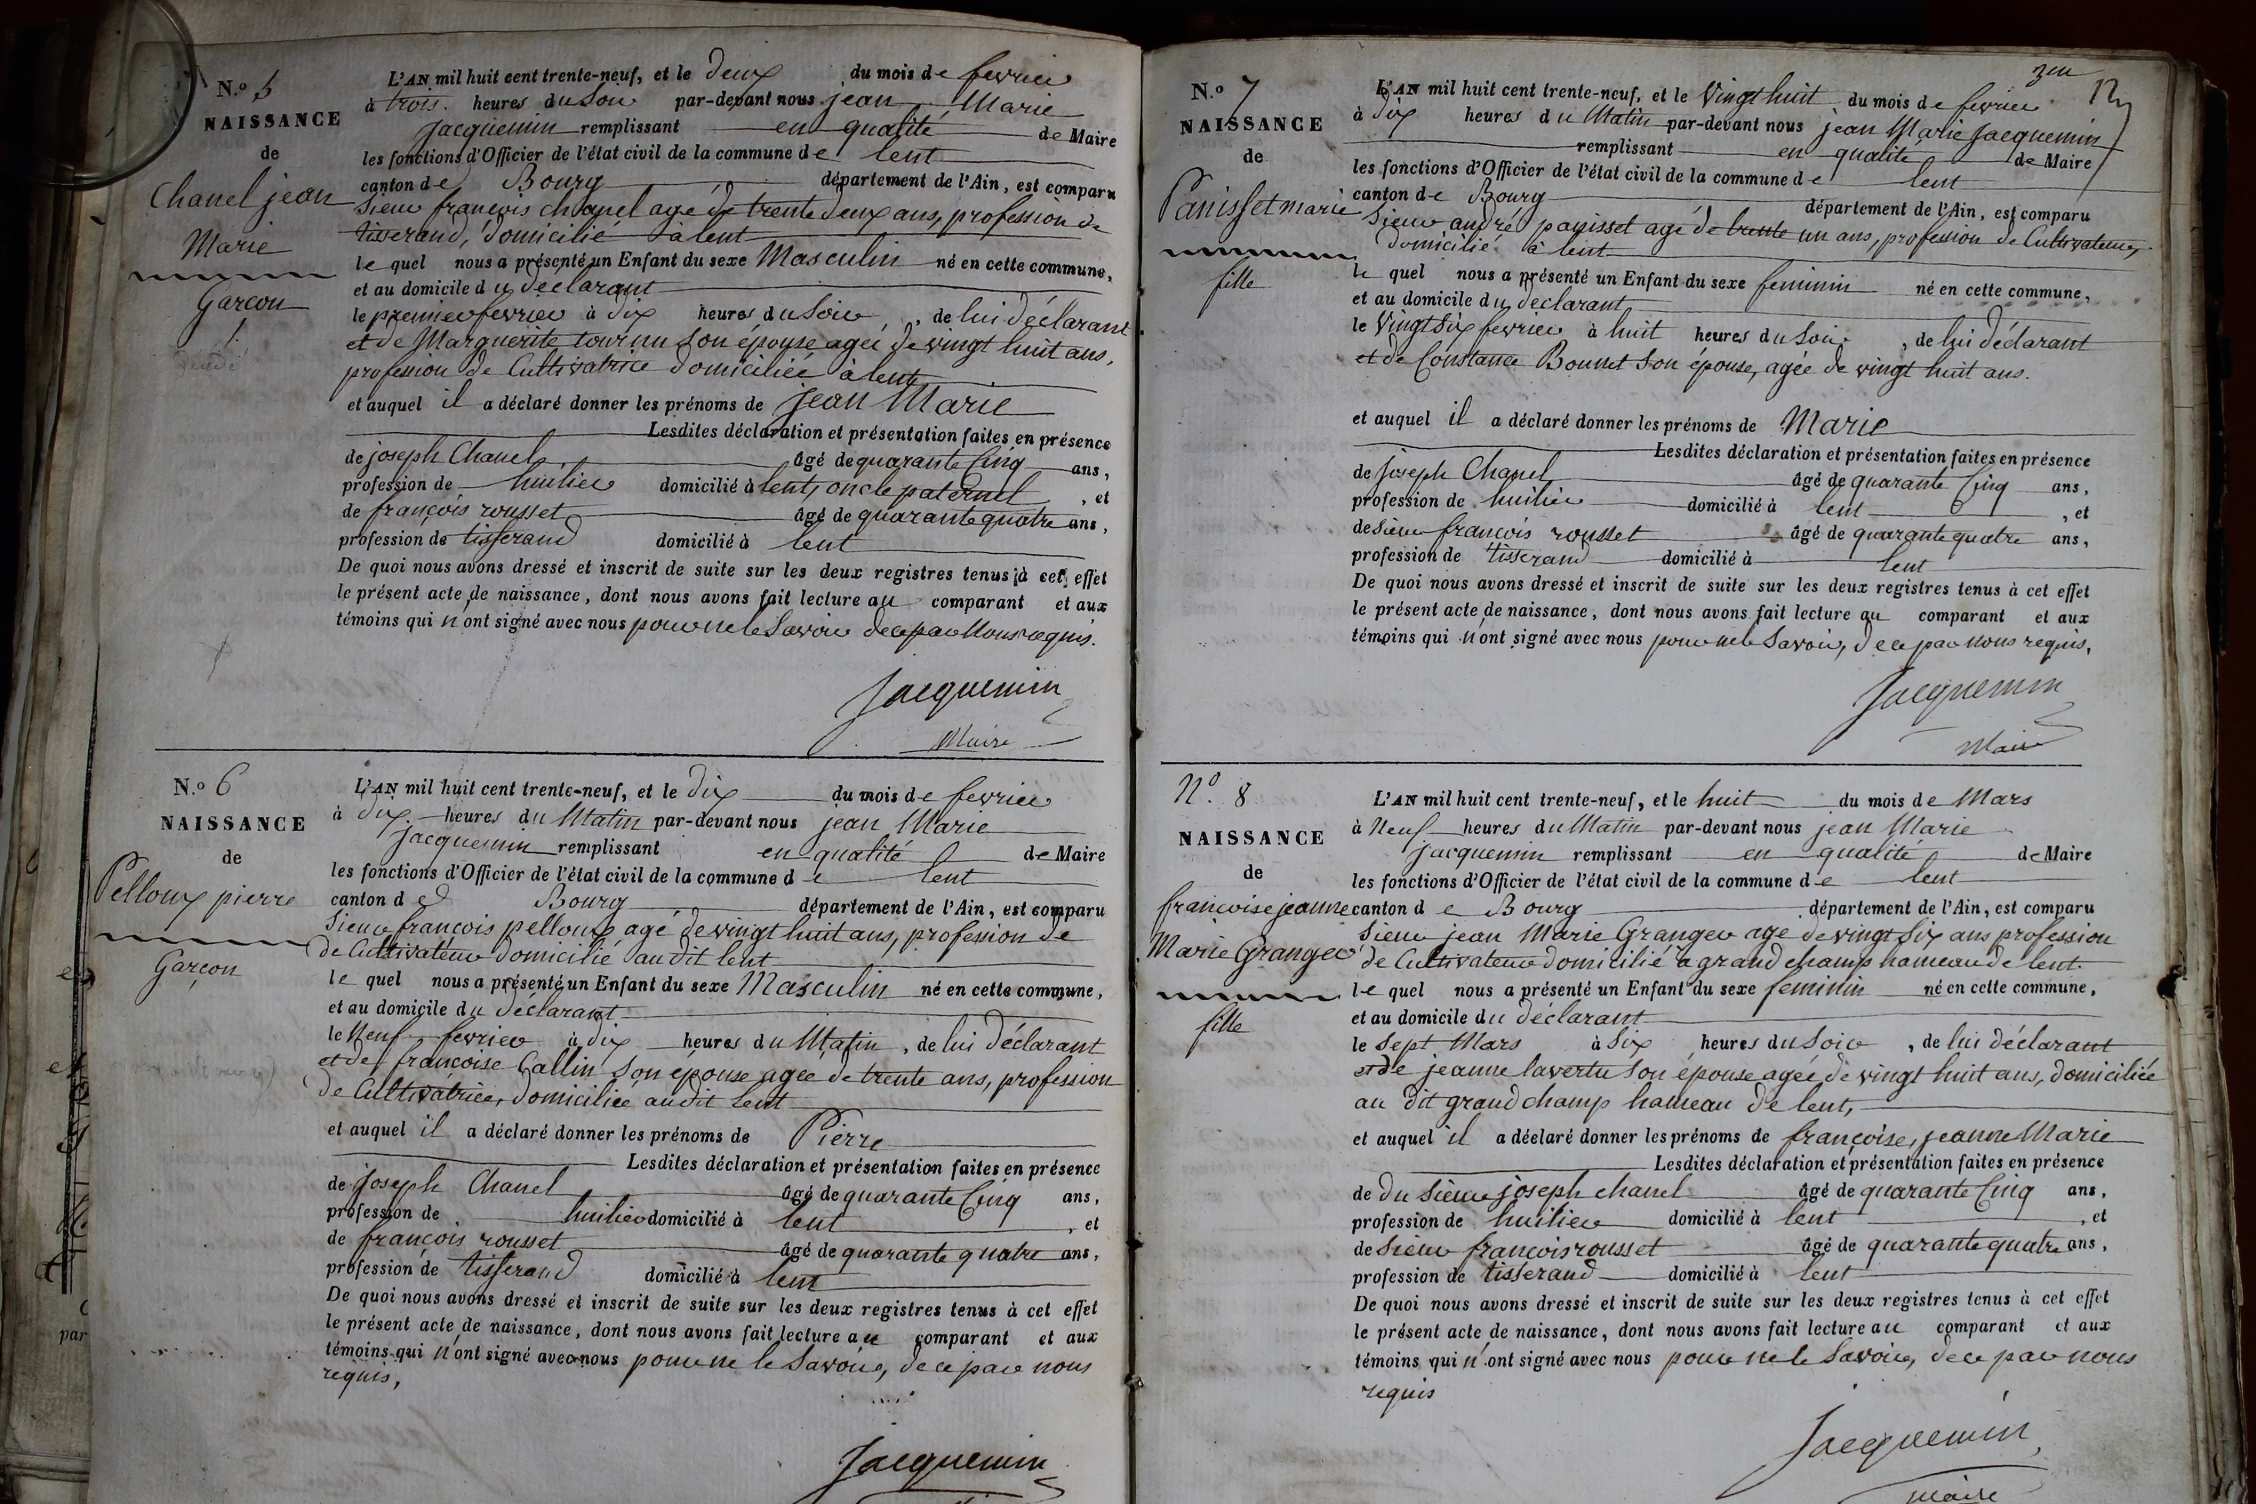 N.o 5
NAISSANCE
de
Chanel jean
Marie
Garçon
L'AN mil huit cent trente-neuf, et le deux du mois de fevrier
à trois heures du Soir par-devant nous jean Marie
jacquemin remplissant en qualité de Maire
les fonctions d'Officier de l'état civil de la commune de lent
canton de Bourg département de l'Ain, est comparu
Sieur françois chanel agé de trente deux ans, profession de
tisserand, domicilié à lent
le quel nous a présenté un Enfant du sexe Masculin né en cette commune,
et au domicile du déclarant
le premier fevrier à dix heures du Soir, de lui déclarant
et de Marguerite tournu Son épouse agée de vingt huit ans,
profession de Cultivatrice domiciliée à lent
et auquel il a déclaré donner les prénoms de jean Marie
Lesdites déclaration et présentation faites en présence
de joseph Chanel âgé de quarante Cinq ans,
profession de huilier domicilié à lent, oncle paternel, et
de françois rousset âgé de quarante quatre ans,
profession de tisserand domicilié à lent
De quoi nous avons dressé et inscrit de suite sur les deux registres tenus à cet effet
le présent acte de naissance, dont nous avons fait lecture au comparant et aux
témoins qui n'ont signé avec nous pour ne le Savoir de ce par nous requis.
Jacquemin
Maire
N.o 6
NAISSANCE
de
Pelloux pierre
Garçon
L'AN mil huit cent trente-neuf, et le dix du mois de fevrier
à dix heures du Matin par-devant nous jean Marie
jacquemin remplissant en qualité de Maire
les fonctions d'Officier de l'état civil de la commune de lent
canton de Bourg département de l'Ain, est comparu
Sieur françois pelloux agé de vingt huit ans, profession de
de Cultivateur domicilié au dit lent
le quel nous a présenté un Enfant du sexe Masculin né en cette commune,
et au domicile du déclarant
le Neuf fevrier à dix heures du Matin, de lui déclarant
et de françoise Callin Son épouse agée de trente ans, profession
de Cultivatrice, domiciliée au dit lent
et auquel il a déclaré donner les prénoms de Pierre
Lesdites déclaration et présentation faites en présence
de joseph Chanel âgé de quarante Cinq ans,
profession de huilier domicilié à lent, et
de françois rousset âgé de quarante quatre ans,
profession de tisserand domicilié à lent
De quoi nous avons dressé et inscrit de suite sur les deux registres tenus à cet effet
le présent acte de naissance, dont nous avons fait lecture au comparant et aux
témoins qui n'ont signé avec nous pour ne le Savoir, de ce par nous
requis,
Jacquemin
12
N.o 7
NAISSANCE
de
Panisset marie
fille
L'AN mil huit cent trente-neuf, et le Vingt huit du mois de fevrier
à dix heures du Matin par-devant nous jean Marie Jacquemin
remplissant en qualité de Maire
les fonctions d'Officier de l'état civil de la commune de lent
canton de Bourg département de l'Ain, est comparu
Sieur andré panisset agé de trente un ans, profession de Cultivateur,
domicilié à lent
le quel nous a présenté un Enfant du sexe feminin né en cette commune,
et au domicile du déclarant
le Vingt Six fevrier à huit heures du Soir, de lui déclarant
et de Constance Bonnet Son épouse, agée de vingt huit ans.
et auquel il a déclaré donner les prénoms de Marie
Lesdites déclaration et présentation faites en présence
de joseph Chanel âgé de quarante Cinq ans,
profession de huilier domicilié à lent, et
de Sieur françois rousset âgé de quarante quatre ans,
profession de tisserand domicilié à lent
De quoi nous avons dressé et inscrit de suite sur les deux registres tenus à cet effet
le présent acte de naissance, dont nous avons fait lecture au comparant et aux
témoins qui n'ont signé avec nous pour ne le Savoir, de ce par nous requis,
Jacquemin
Maire
No. 8
NAISSANCE
de
françoise jeanne
Marie Granger
fille
L'AN mil huit cent trente-neuf, et le huit du mois de Mars
à Neuf heures du Matin par-devant nous jean Marie
jacquemin remplissant en qualité de Maire
les fonctions d'Officier de l'état civil de la commune de lent
canton de Bourg département de l'Ain, est comparu
Sieur jean Marie Granger agé de vingt Six ans profession
de Cultivateur domicilié à grand champ hameau de lent.
le quel nous a présenté un Enfant du sexe feminin né en cette commune,
et au domicile du déclarant
le Sept Mars à Six heures du Soir, de lui déclarant
et de jeanne lavertu Son épouse agée de vingt huit ans, domiciliée
au dit grand champ hameau de lent,
et auquel il a déclaré donner les prénoms de françoise, jeanne Marie
Lesdites déclaration et présentation faites en présence
de du Sieur joseph chanel âgé de quarante Cinq ans,
profession de huilier domicilié à lent, et
de Sieur françois rousset âgé de quarante quatre ans,
profession de tisserand domicilié à lent
De quoi nous avons dressé et inscrit de suite sur les deux registres tenus à cet effet
le présent acte de naissance, dont nous avons fait lecture au comparant et aux
témoins qui n'ont signé avec nous pour ne le Savoir, de ce par nous
requis
Jacquemin
Maire